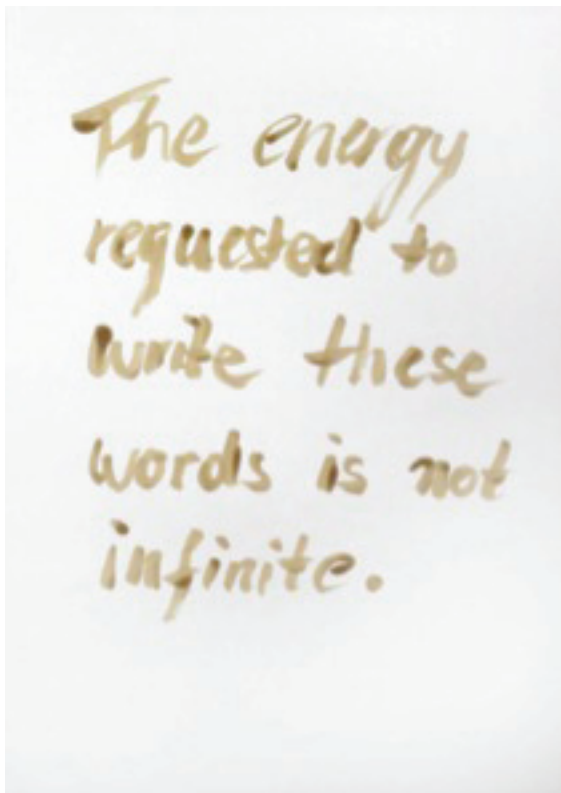 The energy
requested to
write these
words is not
infinite.